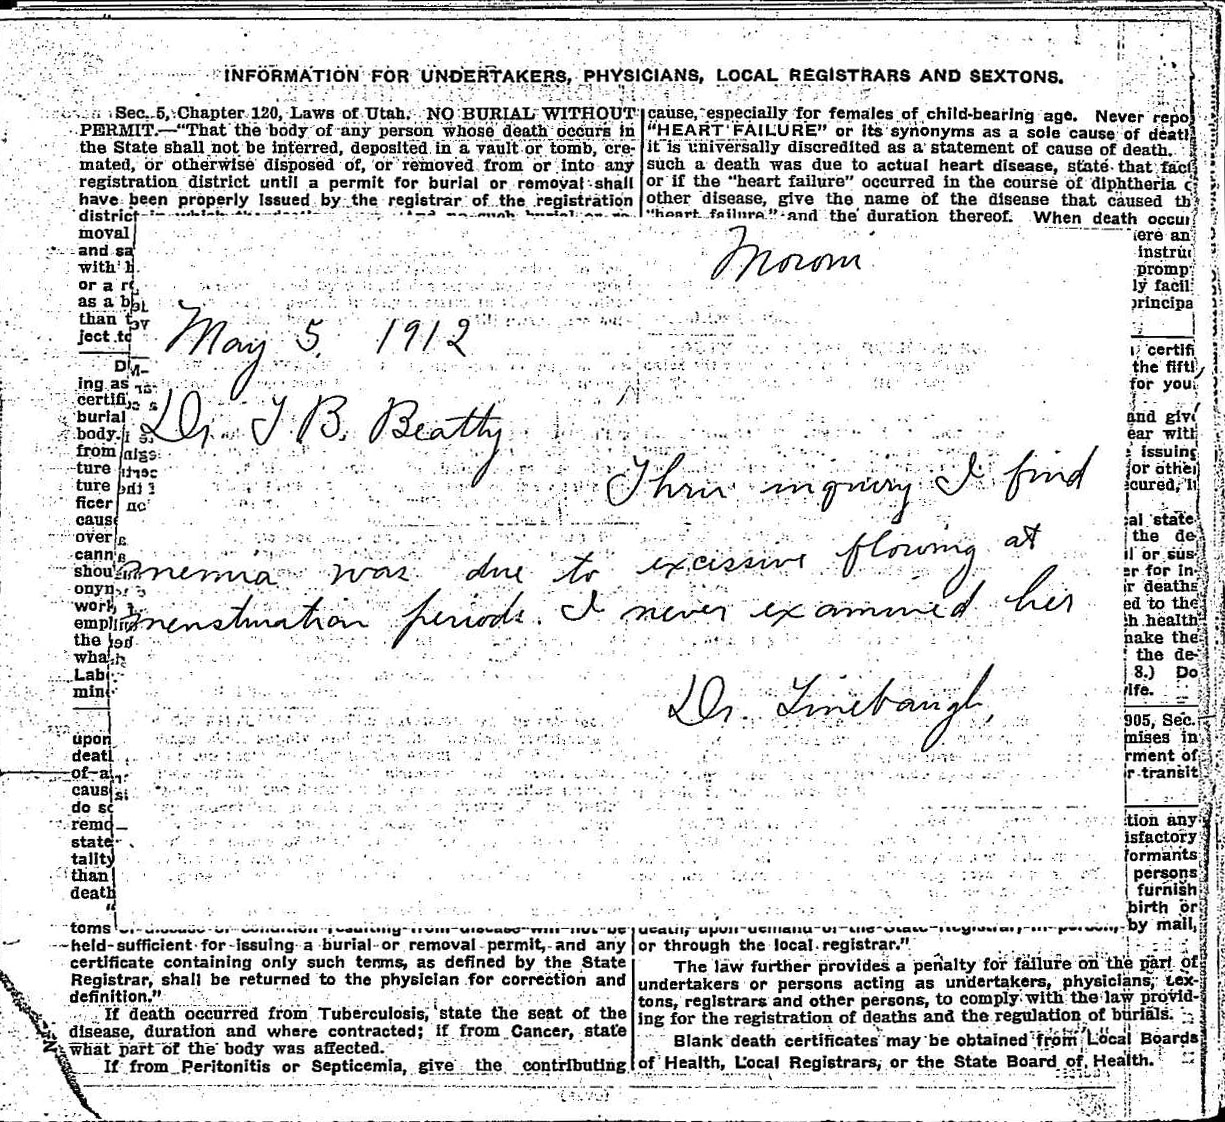 INFORMATION FOR UNDERTAKERS, PHYSICIANS, LOCAL REGISTRARS AND SEXTONS.
Sec. 5, Chapter 120, Laws of Utah. NO BURIAL WITHOUT
PERMIT.—"That the body of any person whose death occurs in
the State shall not be interred, deposited in a vault or tomb, cre-
mated, or otherwise disposed of, or removed from or into any
registration district until a permit for burial or removal shall
have been properly issued by the registrar of the registration
district
moval
and sa
with h
or a re
as a b
than t
ject to
ing as
certifi
burial
body.
from
ture
ture
ficer
cause
over
cann
shou
onym
work
empl
the
wha
Lab
min
upon
deat
of a
caus
do so
remo
state
tality
than
death
"
toms
held sufficient for issuing a burial or removal permit, and any
certificate containing only such terms, as defined by the State
Registrar, shall be returned to the physician for correction and
definition."
If death occurred from Tuberculosis, state the seat of the
disease, duration and where contracted; if from Cancer, state
what part of the body was affected.
If from Peritonitis or Septicemia, give the contributing
cause, especially for females of child-bearing age. Never repo
"HEART FAILURE" or its synonyms as a sole cause of death
it is universally discredited as a statement of cause of death.
such a death was due to actual heart disease, state that fact
or if the "heart failure" occurred in the course of diphtheria o
other disease, give the name of the disease that caused th
"heart failure" and the duration thereof. When death occur
ere an
instruc
promp
ly facil
principa
certifi
the fift
for you
and give
ear with
issuing
or other
cured, it
al state
the de
il or sus-
er for in-
r deaths
ed to the
h health
nake the
the de-
8.) Do
ife.
905, Sec.
mises in
rment of
r transit
tion any
isfactory
formants
persons
furnish
birth or
death, upon demand of the State Registrar, in person, by mail,
or through the local registrar."
The law further provides a penalty for failure on the part of
undertakers or persons acting as undertakers, physicians, sex-
tons, registrars and other persons, to comply with the law provid-
ing for the registration of deaths and the regulation of burials.
Blank death certificates may be obtained from Local Boards
of Health, Local Registrars, or the State Board of Health.
Moroni
May 5, 1912
Dr. T. B. Beatty
Thru inquiry I find
anemia was due to excessive flowing at
menstruation periods. I never examined her
Dr. Linebaugh,